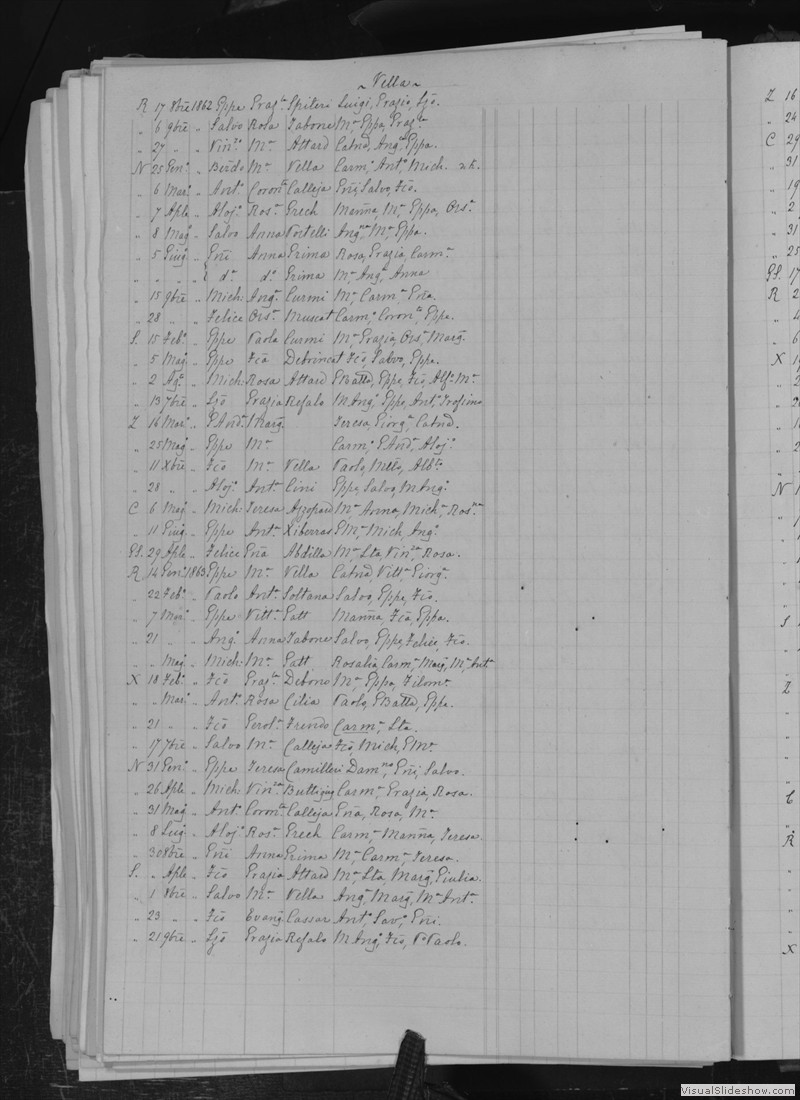 ~ Vella ~
R 17 8bre 1862 Eppe Graz.a Spiteri Luigi, Grazio, Ljō.
" 6 9bre " Salvo Rosa Tabone M.a Eppa, Graz.a
" 27 " " Vin.zo M.a Attard Catnd, Ang.a Eppa.
N 25 Gen.o " Berdo M.a Vella Carm.o Ant.o Mich.
" 6 Mar.o " Ant.o Coron.ta Calleja Gñi, Salvo, Fcō.
" 7 Aple " Aloj.o Ros.a Grech Manña, M.a Eppa, Ors.a
" 8 Mag. " Salvo Anna Portelli Ang.ca M.a Eppa.
" 5 Giug.o " Gñi Anna Grima Rosa, Grazia, Carm.a
" " " " d.o d.o Grima M.a Ang.a Anna
" 15 9bre " Mich: Ang.a Curmi M.a Carm.a Gña.
" 28 " " Felice Ors.a Muscat Carm.o Coron.ta Eppa.
S. 15 Feb.o " Eppe Paola Curmi M.a Grazia, Ors.a Marg.
" 5 Mag. " Eppe Fca Debrincat Fcō, Salvo, Eppa.
" 2 Ag.o " Mich: Rosa Attard GBatta, Eppe, Fcō, Alf.o M.a
" 13 7bre " Ljō Grazia Refalo M Ang.o Eppe, Ant.o Trofimo
Z 16 Mar.o " GAnd.a Marg. Teresa, Giorg.o Catnd.
" 25 Mag. " Eppe M.a Carm.o GAnd.a Aloj.o
" 11 Xbre " Fcō M.a Vella Paolo, Albto.
" 28 " " Aloj.o Ant.a Cini Eppe, Salvo, M Ang.o
C 6 Mag. " Mich: Teresa Azzopard M.a Anna, Mich.a Ros.na
" 11 Giug. " Eppe Ant.a Xiberras GM.a Mich, Ang.o
GS. 29 Aple " Felice Gña Abdilla M.a Lta, Vin.za Rosa.
R 14 Gen.o 1863 Eppe M.a Vella Catnd, Vitt.a Giorg.a
" 22 Feb.o " Paolo Ant.a Soltana Salvo, Eppe, Fcō.
" 7 Mar.o " Eppe Vitt.a Gatt Manña, Fcō, Eppa.
" 21 " " Ang.o Anna Tabone Salvo, Eppe, Felice, Fcō.
" " Mag. " Mich: M.a Gatt Rosalia, Carm.a Marg, M.a Ant.a
X 18 Feb.o " Fcō Graz.a Debono M.a Eppa, Filom.a
" " Mar.o " Ant.o Rosa Cilia Paolo, GBatta, Eppa.
" 21 " " Fcō Perol.a Frendo Carm.a Lta.
" 17 7bre " Salvo M.a Calleja Fcō, Mich, GM.a
N 31 Gen.o " Eppe Teresa Camilleri Dam.no Gñi, Salvo.
" 26 Aple " Mich: Vin.za Buttigieg Carm.a Grazia, Rosa.
" 31 Mag " Ant.o Coron.ta Calleja Gña, Rosa, M.a
" 8 Lug. " Aloj.o Ros.a Grech Carm.a Manña, Teresa.
" 30 8bre " Gñi Anna Grima M.a Carm.a Teresa.
S. " Aple " Fcō Grazia Attard M.a Lta, Marg, Giulia.
" 1 8bre " Salvo M.a Vella Ang.a Marg, M.a Ant.a
" 23 " " Fcō Evang. Cassar Ant.o Sav.o Gñi.
" 21 9bre " Ljō Grazia Refalo M Ang.o, Fcō, Paolo.
Z 16
" 24
C 29
" 31
" 19
" 2
" 31
" 25
GS. 17
R 2
" 4
" 6
X
N
S
Z
C
R
X
VisualSlideshow.com